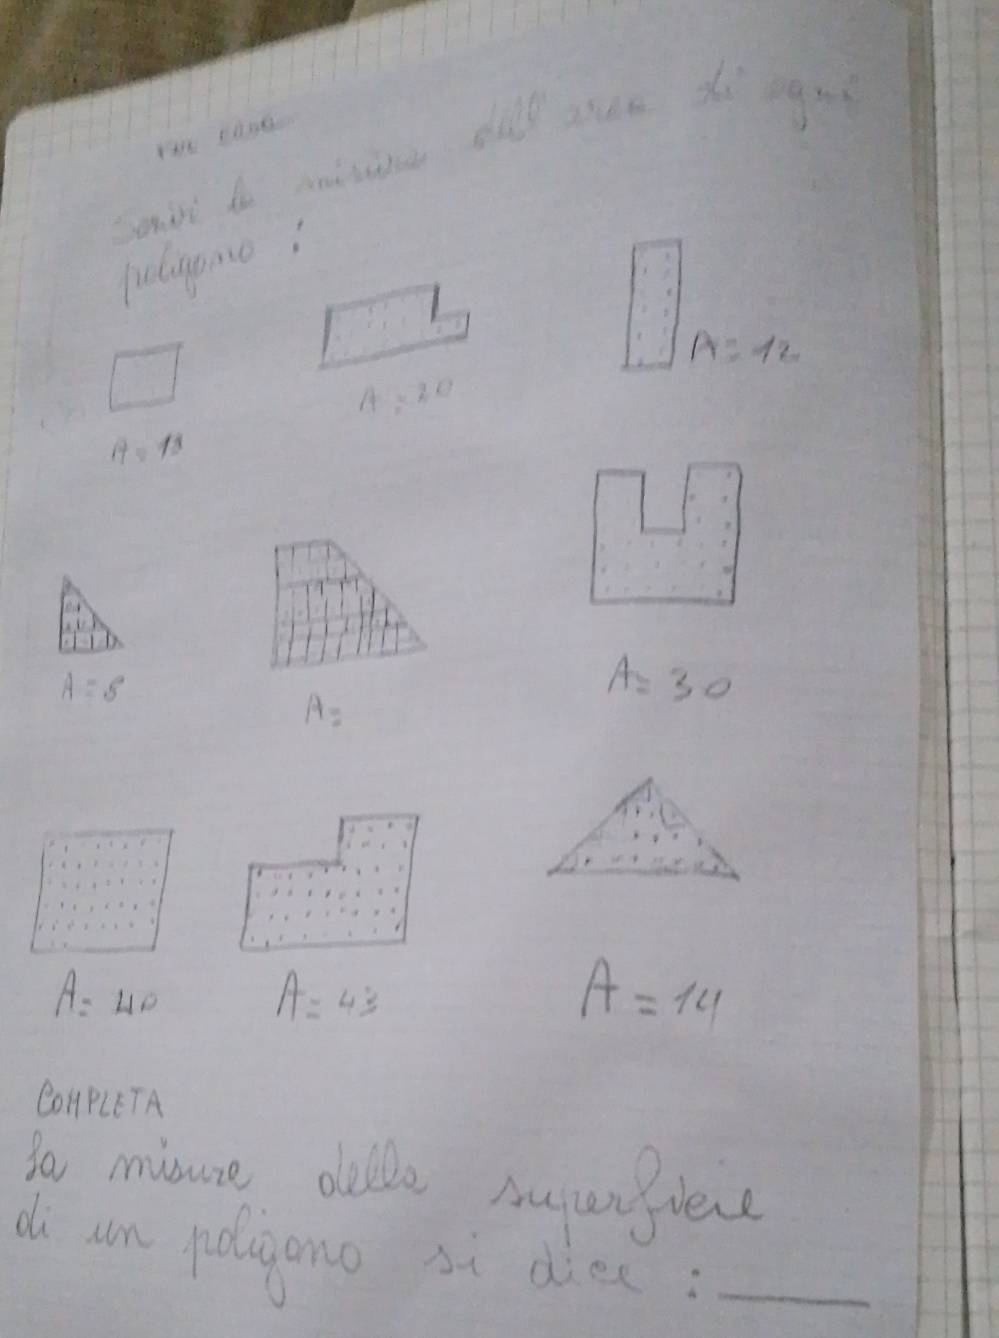 PER CASA
Scrivi la misura dell'area di ogni
poligono :
A = 12
A = 20
A =
A = 30
A = 40
A = 43
A = 14
COMPLETA
La misura della superficie
di un poligono si dice :